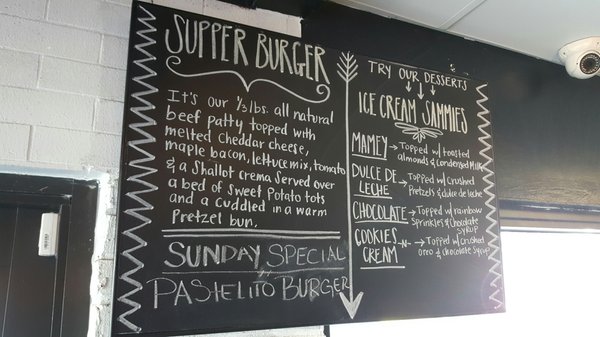 SUPPER BURGER
It's our 1/3 lbs. all natural
beef patty topped with
melted Cheddar cheese,
maple bacon, lettuce mix, tomato
& a Shallot crema. Served over
a bed of Sweet Potato tots
and a cuddled in a warm
Pretzel bun.
SUNDAY SPECIAL
PASTELITO BURGER
TRY OUR DESSERTS
ICE CREAM SAMMIES
MAMEY → Topped w/ toasted
almonds & Condensed Milk
DULCE DE
LECHE → Topped w/ Crushed
Pretzels & dulce de leche
CHOCOLATE → Topped w/ rainbow
Sprinkles & Chocolate
Syrup
COOKIES -N-
CREAM → Topped w/ Crushed
Oreo & chocolate Syrup